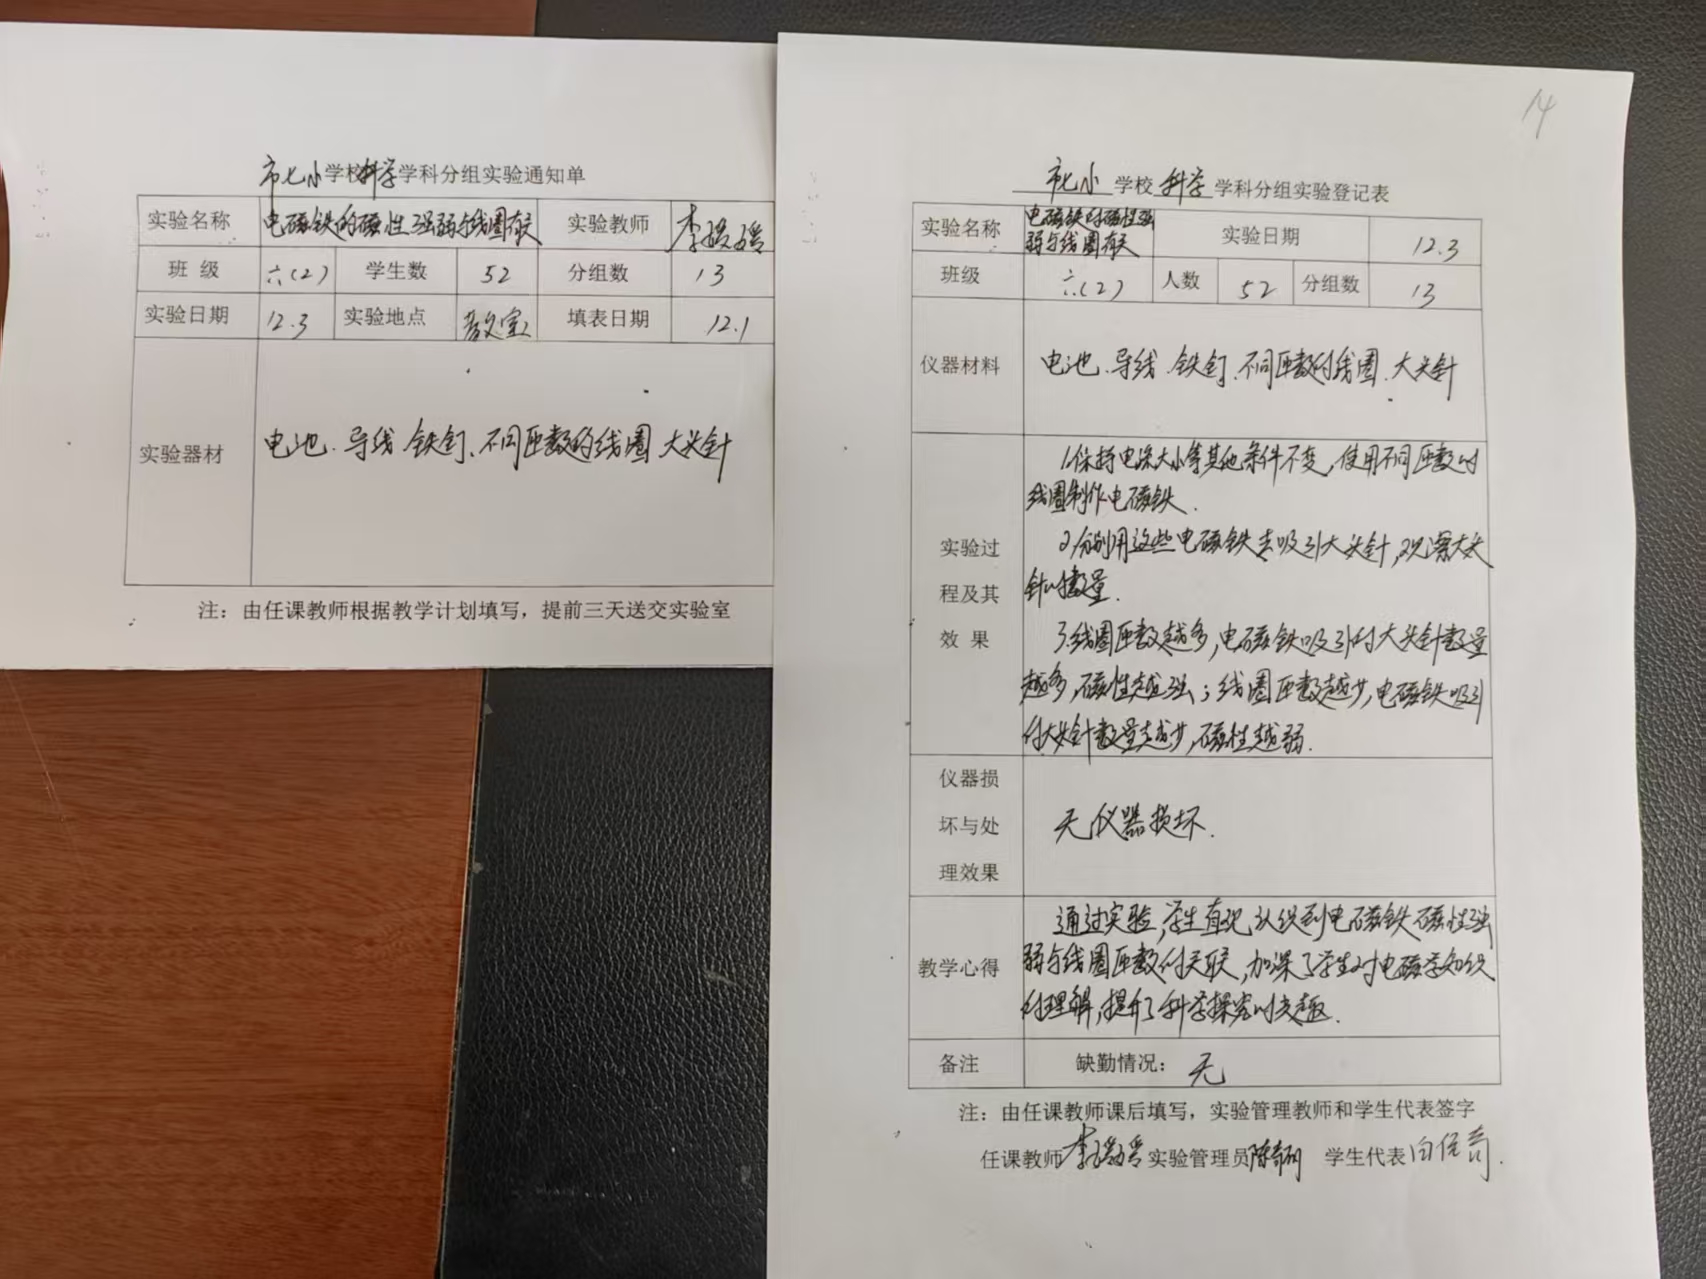 市七小学校科学学科分组实验通知单
实验名称 电磁铁的磁性强弱与线圈有关 实验教师
班 级 六(2) 学生数 52 分组数 13
实验日期 12.3 实验地点 教室 填表日期 12.1
实验器材 电池、导线、铁钉、不同匝数的线圈 大头针
注：由任课教师根据教学计划填写，提前三天送交实验室
14
市七小 学校 科学 学科分组实验登记表
实验名称 电磁铁的磁性强
弱与线圈有关 实验日期 12.3
班级 六(2) 人数 52 分组数 13
仪器材料 电池、导线、铁钉、不同匝数的线圈、大头针
1.保持电流大小等其他条件不变，使用不同匝数的
线圈制作电磁铁.
实验过 2.分别用这些电磁铁去吸引大头针，观察大头
程及其 针的数量.
效 果 3.线圈匝数越多，电磁铁吸引的大头针数量
越多，磁性越强；线圈匝数越少，电磁铁吸引
的大头针数量越少，磁性越弱.
仪器损
坏与处 无仪器损坏.
理效果
通过实验，学生直观认识到电磁铁磁性强
教学心得 弱与线圈匝数的关联，加深了学生对电磁学知识
的理解，提升了科学探究的兴趣.
备注 缺勤情况： 无
注：由任课教师课后填写，实验管理教师和学生代表签字
任课教师 实验管理员 学生代表